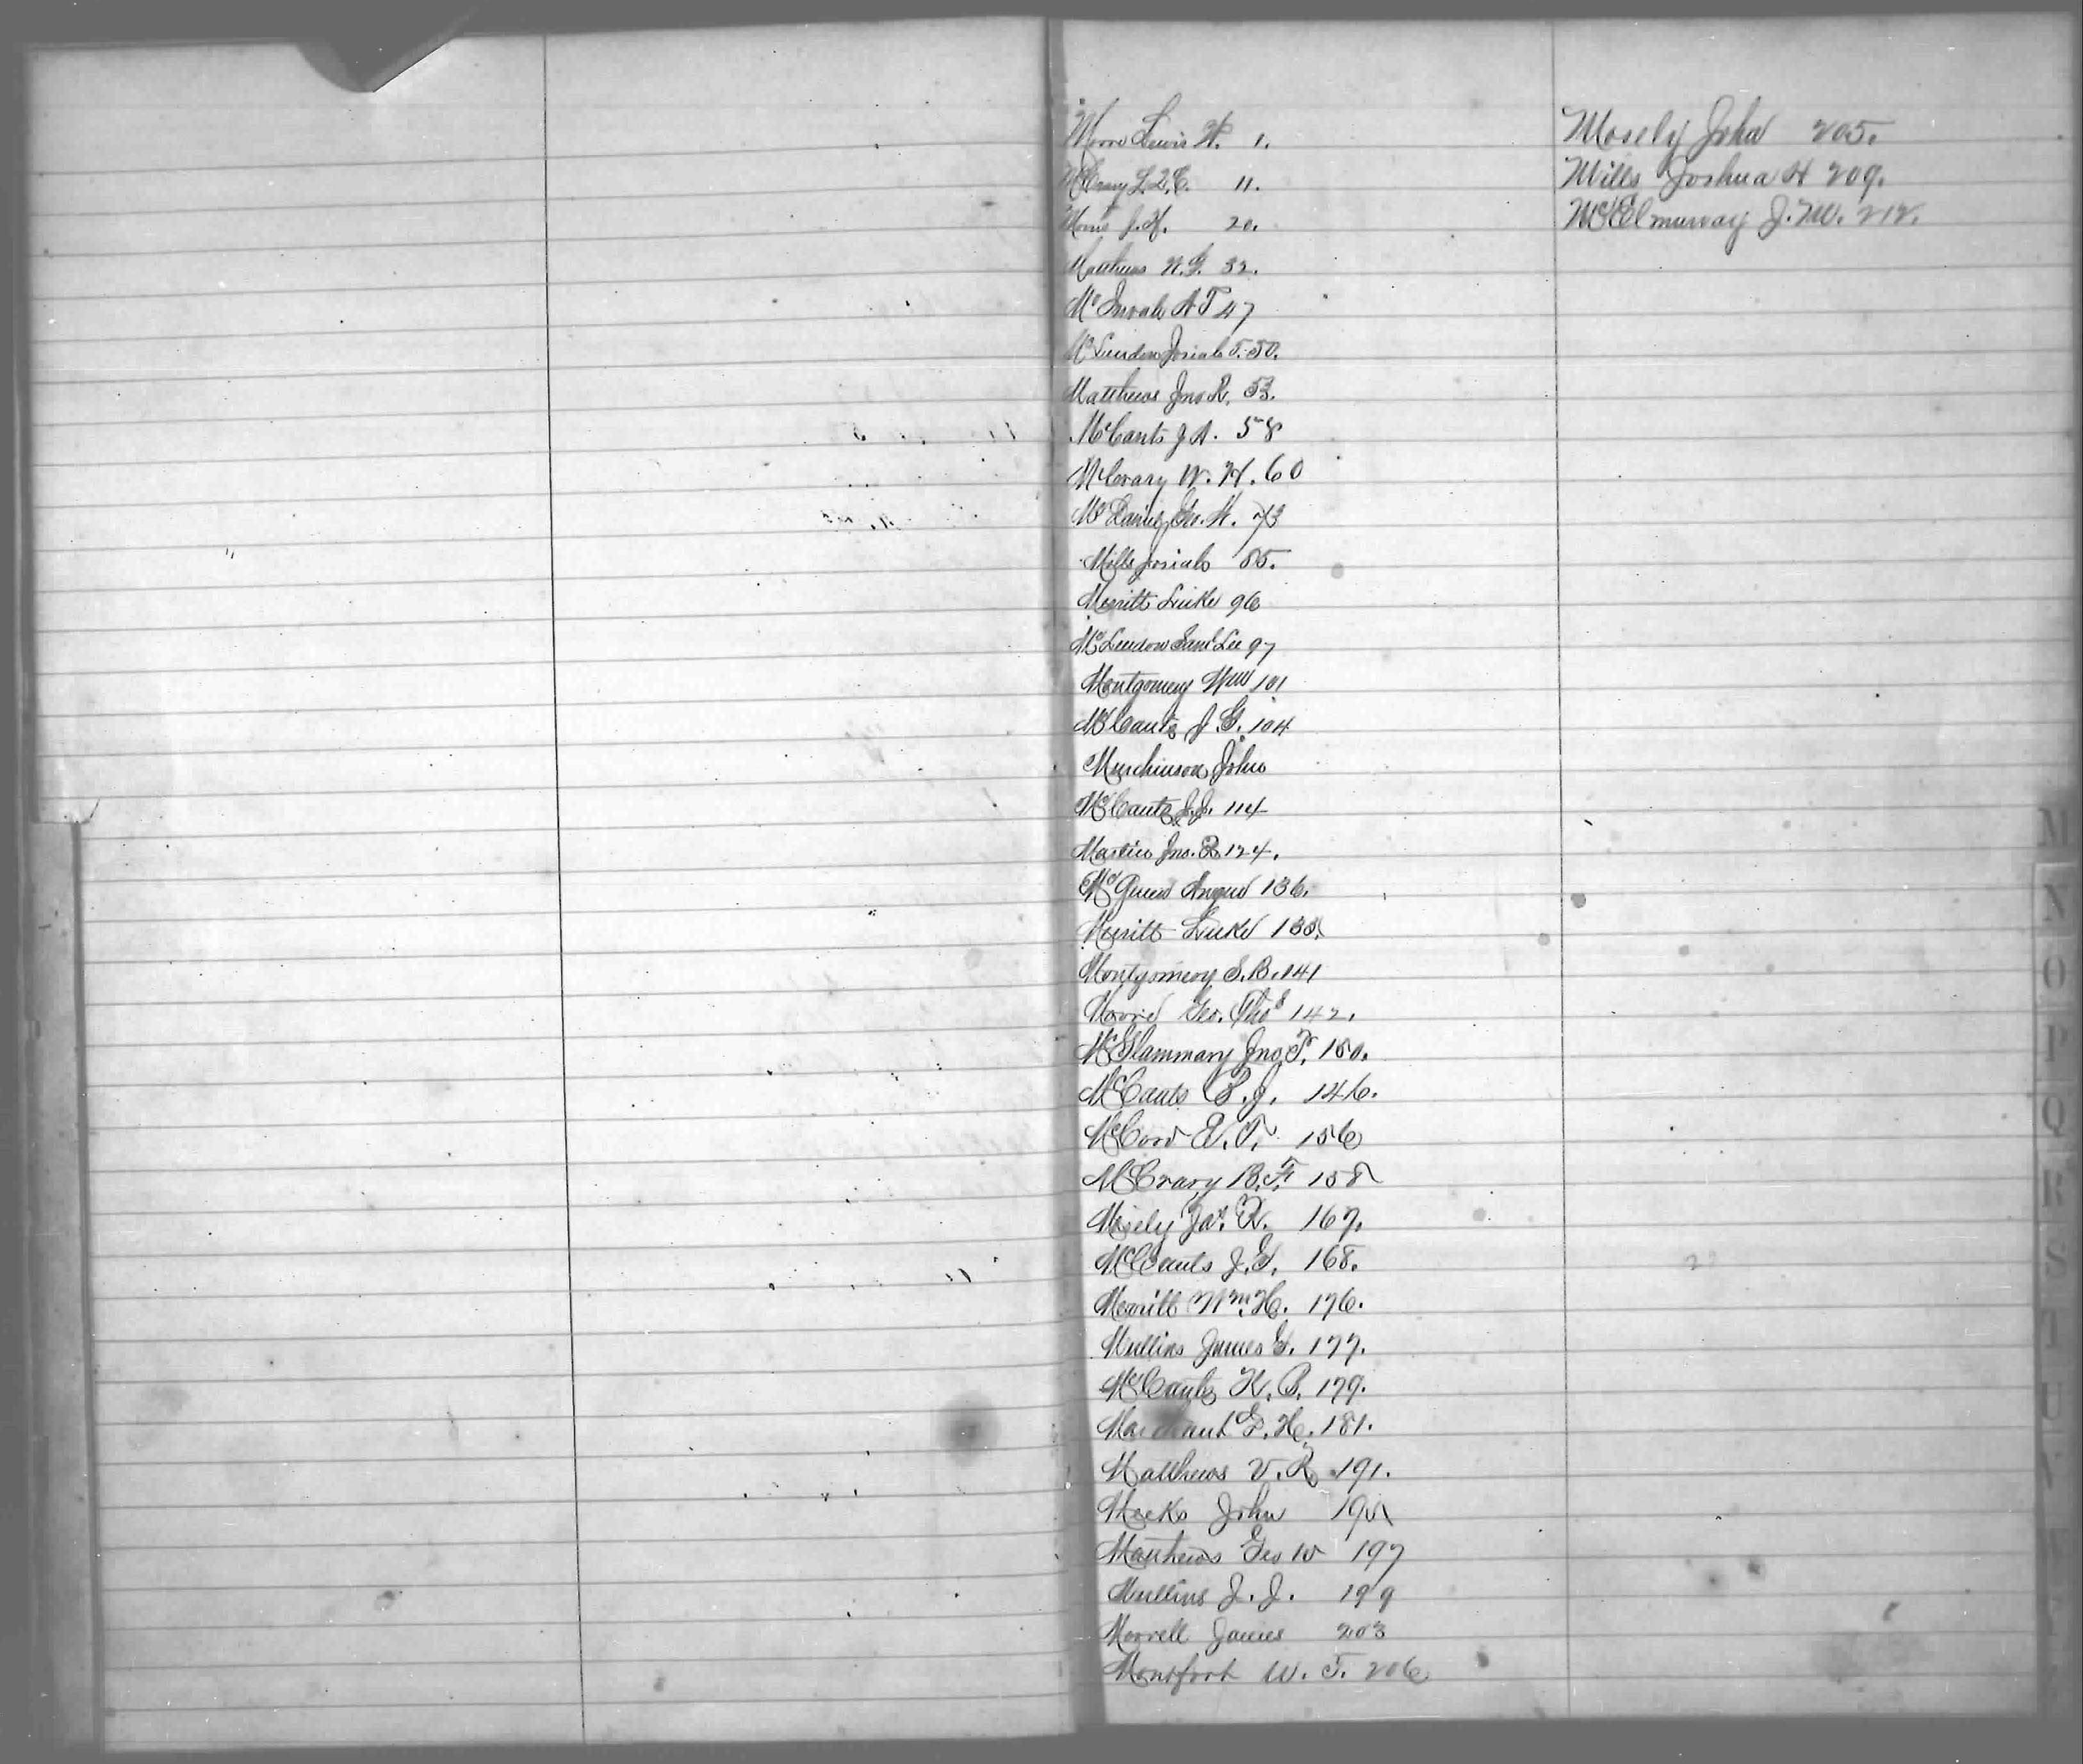 Moore Lewis W. 1.
McCrary L.Q.C. 11.
Morris J.H. 20.
Matthews N.G. 32.
McInvale A T 47
McLendon Josiah F. 50.
Matthews Jno R. 53.
McCants J A. 58
McCrary W. H. 60
McDaniel Geo. H. 73
Mills Josiah 85.
Merritt Luke 96
McLendon Saml Lee 97
Montgomery Wm 101
McCants J G. 104
Murchinson John
McCants J.J. 114
Martin Jno. B 124.
McQueen Angus 136.
Merritt Luke 138.
Montgomery S.B. 141
Moore Geo. Thos 142.
McGlammary Jno. T. 150.
McCants P.J. 146.
McCord E.T. 156
McCrary B.F. 158
Mosely Jas. R. 167.
McCants J.G. 168.
Merritt Wm. H. 176.
Mullins James G. 177.
McCants K.P. 179.
Marchant G.H. 181.
Matthews V.R. 191.
Meeks John
Matthews Geo W 197
Mullins J.J. 199
Morrell James 203
Montfort W. T. 206
Mosely John 205.
Mills Joshua H 209.
McElmurray J.W. 212.
M
N
O
P
Q
R
S
T
U
V